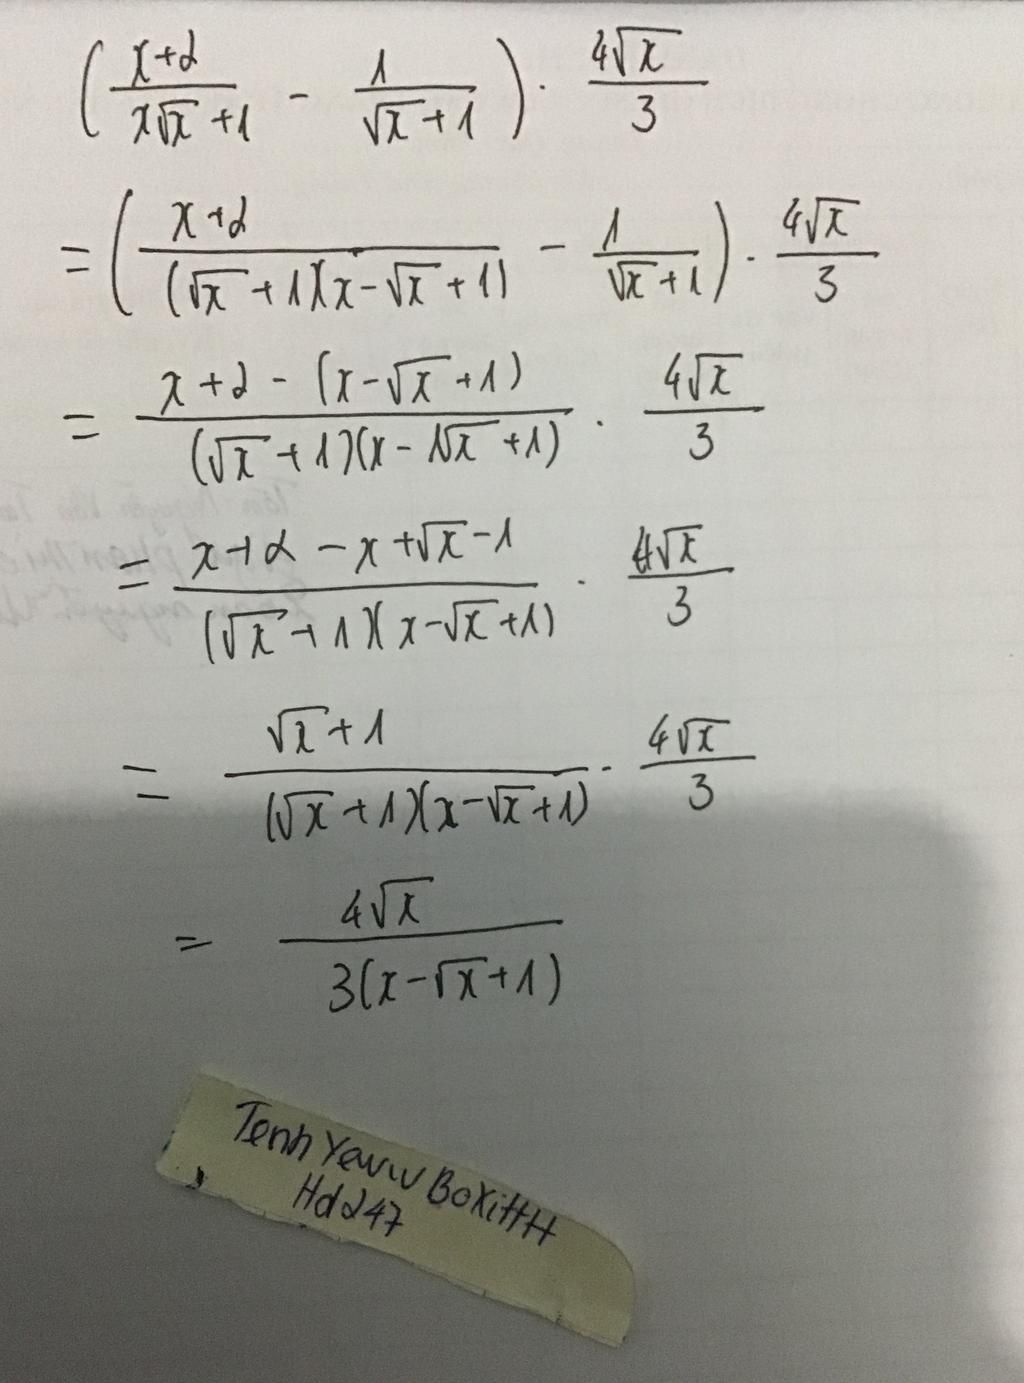 (x+2/x√x+1 - 1/√x+1) . 4√x/3
= (x+2/(√x+1)(x-√x+1) - 1/√x+1) . 4√x/3
= x+2-(x-√x+1)/(√x+1)(x-√x+1) . 4√x/3
= x+2-x+√x-1/(√x+1)(x-√x+1) . 4√x/3
= √x+1/(√x+1)(x-√x+1) . 4√x/3
= 4√x/3(x-√x+1)
Hd247